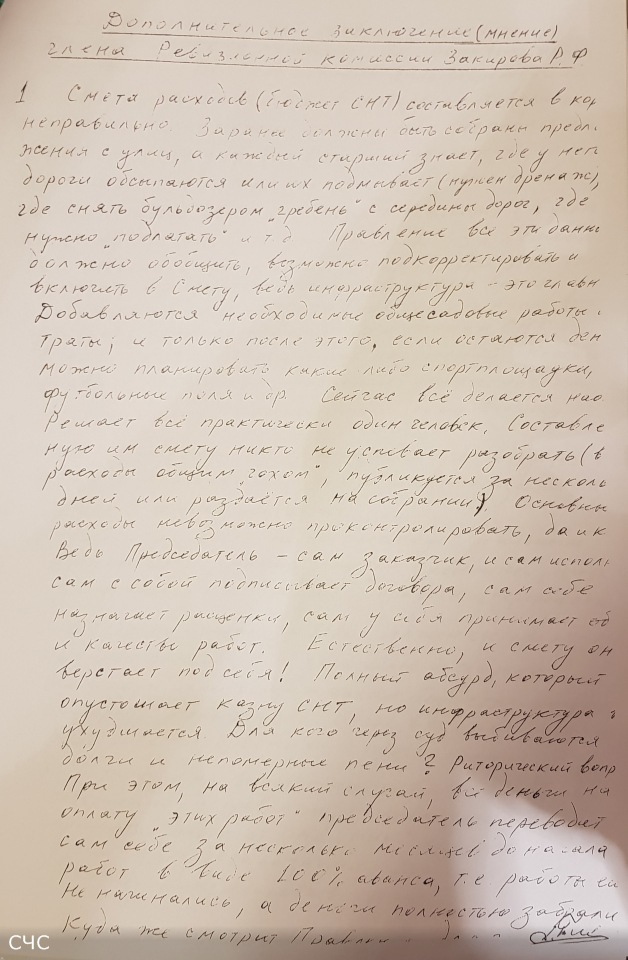 Дополнительное заключение (мнение)
члена Ревизионной комиссии Закирова Р.Ф
1 Смета расходов (бюджет СНТ) составляется в кор
неправильно. Заранее должны быть собраны предло
жения с улиц, а каждый старший знает, где у него
дороги обсыпаются или их подмывает (нужен дренаж),
где снять бульдозером "гребень" с середины дорог, где
нужно "подлатать" и т.д Правление все эти данны
должно обобщить, возможно подкорректировать и
включить в Смету, ведь инфраструктура - это главн
Добавляются необходимые общесадовые работы
траты; и только после этого, если остаются ден
можно планировать какие-либо спортплощадки,
футбольные поля и др. Сейчас всё делается нао
Решает всё практически один человек. Составле
ную им смету никто не успевает разобрать (в
расходы общим "чохом", публикуется за несколь
дней или раздаётся на собрании). Основны
расходы невозможно проконтролировать, да и к
Ведь Председатель - сам заказчик, и сам исполн
сам с собой подписывает договора, сам себе
назначает расценки, сам у себя принимает об
и качество работ. Естественно, и смету он
верстает под себя! Полный абсурд, который
опустошает казну СНТ, но инфраструктура
ухудшается Для кого через суд выбиваются
долги и непомерные пени? Риторический вопр
При этом, на всякий случай, все деньги на
оплату "этих работ" председатель переводит
сам себе за несколько месяцев до начала
работ в виде 100% аванса, т.е. работы ещ
не начинались, а деньги полностью забрали
Куда же смотрит Правлен
СЧС